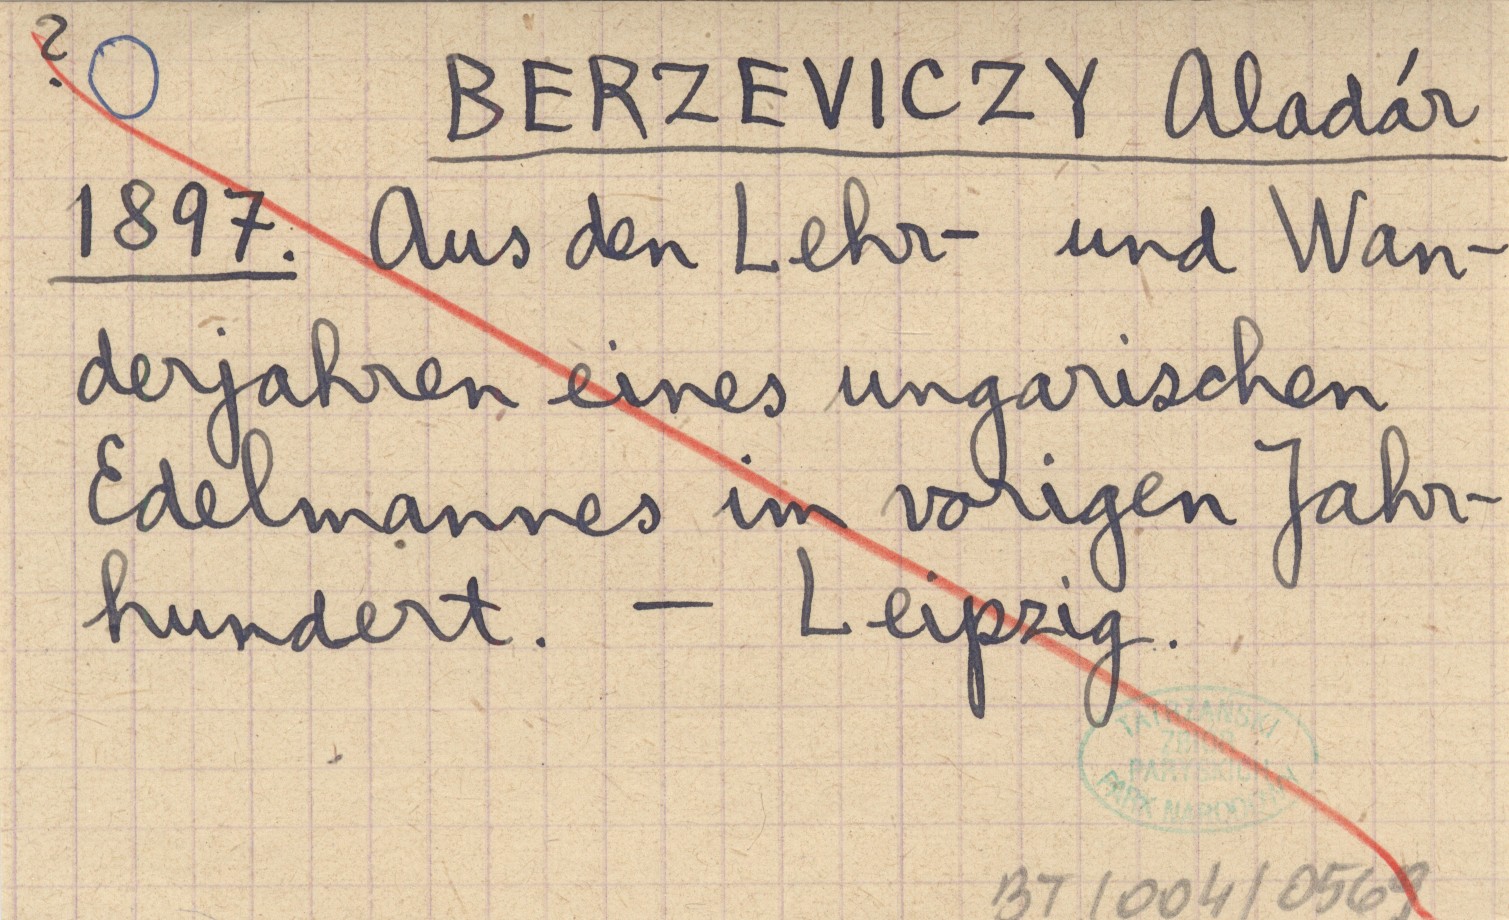 ?
BERZEVICZY Aladár
1897. Aus den Lehr- und Wan-
derjahren eines ungarischen
Edelmannes im vorigen Jahr-
hundert. — Leipzig.
TATRZAŃSKI
ZBIÓR
PARYSKICH
PARK NARODOWY
BT/004/0569